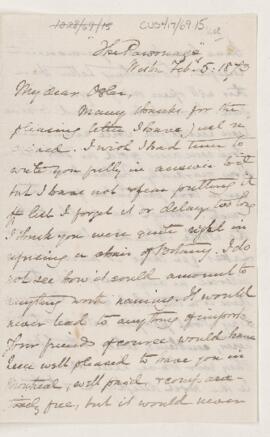 1028/69/15 CUS417/69.15
"The Parsonage"
Weston Feb. 5. 1873
My dear Osler,
Many thanks for the
pleasing letter I have just re
ceived. I wish I had time to
write you fully in answer
but I have not & fear putting it
off lest I forget it or delay too long
I think you were quite right in
refusing a chair of Botany. I do
not see how it could amount to
anything worth naming. It would
never lead to anything of import.
Your friends of course would have
been well pleased to have you in
Montreal, well paid &
free, but it would never